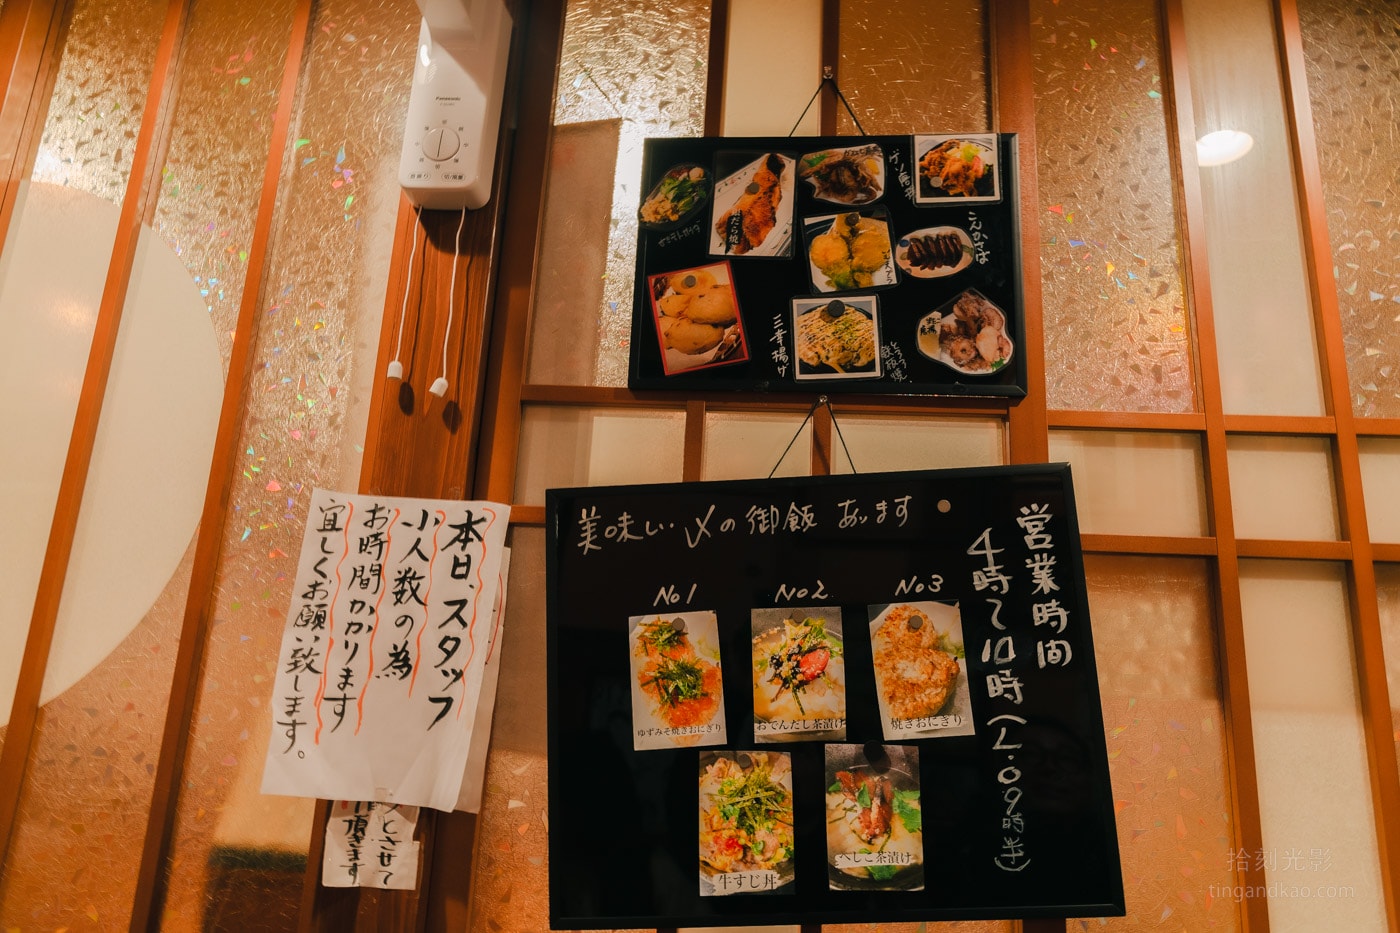 Panasonic
ゲソ唐辛
こんかさば
三幸揚げ
とろろ
鉄板焼
本日、スタッフ
小人数の為
お時間かかります
宜しくお願い致します。
とさせて
頂きます
美味しい〆の御飯 あります
営業時間
4時て10時(L.O9時半)
No1
No2
No3
ゆずみそ焼きおにぎり
おでんだし茶漬け
焼きおにぎり
牛すじ丼
へしこ茶漬け
拾刻光影
tingandkao.com